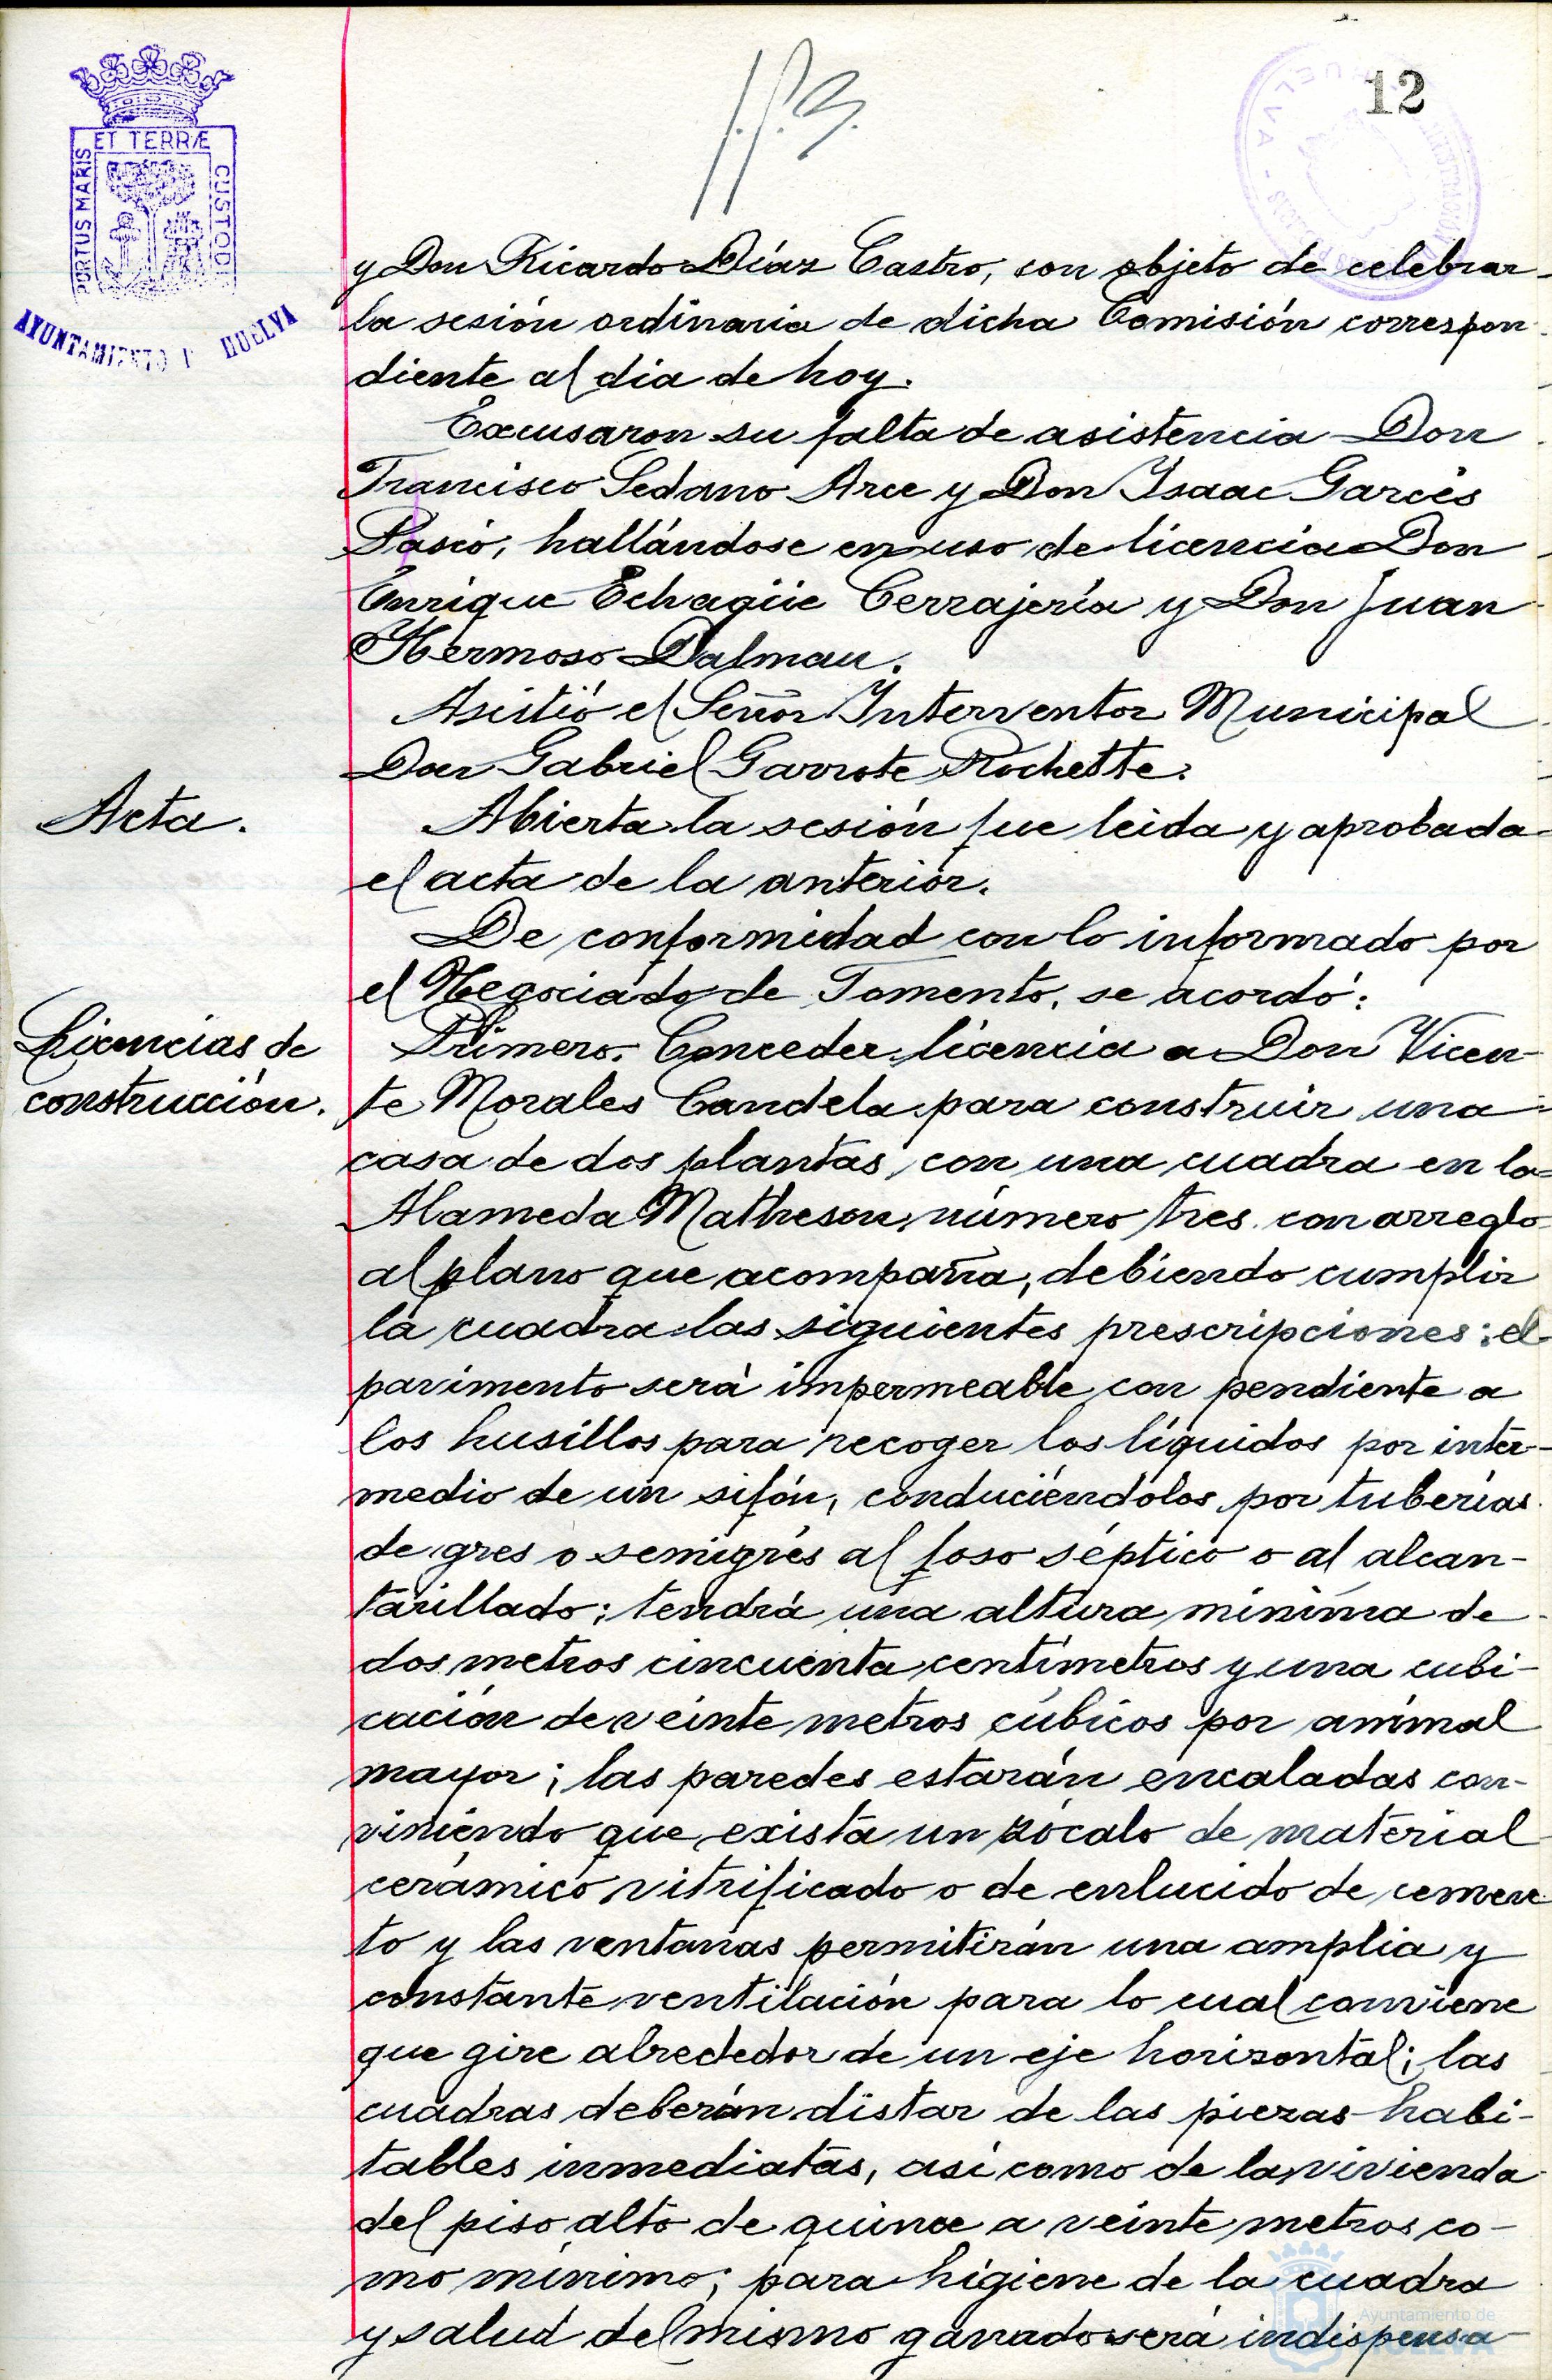 12
ET TERRÆ
PORTUS MARIS
CUSTODI
AYUNTAMIENTO
HUELVA
y Don Ricardo Díaz Castro, con objeto de celebrar
la sesión ordinaria de dicha Comisión correspon-
diente al dia de hoy.
Excusaron su falta de asistencia Don
Francisco Sedano Arce y Don Isaac Garcés
hallándose en uso de licencia Don
Enrique Echagüe Cerrajería y Don Juan
Hermoso Dalmau.
Asistió el Señor Interventor Municipal
Don Gabriel Garrote Rochette.
Acta.
Abierta la sesión fue leida y aprobada
el acta de la anterior.
De conformidad con lo informado por
el Negociado de Fomento, se acordó:
Licencias de
construcción.
Primero. Conceder licencia a Don Vicen-
te Morales Candela para construir una
casa de dos plantas, con una cuadra en la
Alameda Matheson, número tres, con arreglo
al plano que acompaña, debiendo cumplir
la cuadra las siguientes prescripciones: el
pavimento será impermeable con pendiente a
los husillos para recoger los líquidos por inter-
medio de un sifón, conduciéndolos por tuberías
de gres o semigrés al foso séptico o al alcan-
tarillado; tendrá una altura mínima de
dos metros cincuenta centímetros y una cubi-
cación de veinte metros cúbicos por animal
mayor; las paredes estarán encaladas con-
viniendo que exista un zócalo de material
cerámico vitrificado o de enlucido de cemen-
to y las ventanas permitirán una amplia y
constante ventilación para lo cual conviene
que gire alrededor de un eje horizontal; las
cuadras deberán distar de las piezas habi-
tables inmediatas, así como de la vivienda
del piso alto de quince a veinte metros co-
mo mínimo; para higiene de la cuadra
y salud del mismo ganado será indispensa-
Ayuntamiento de
HUELVA